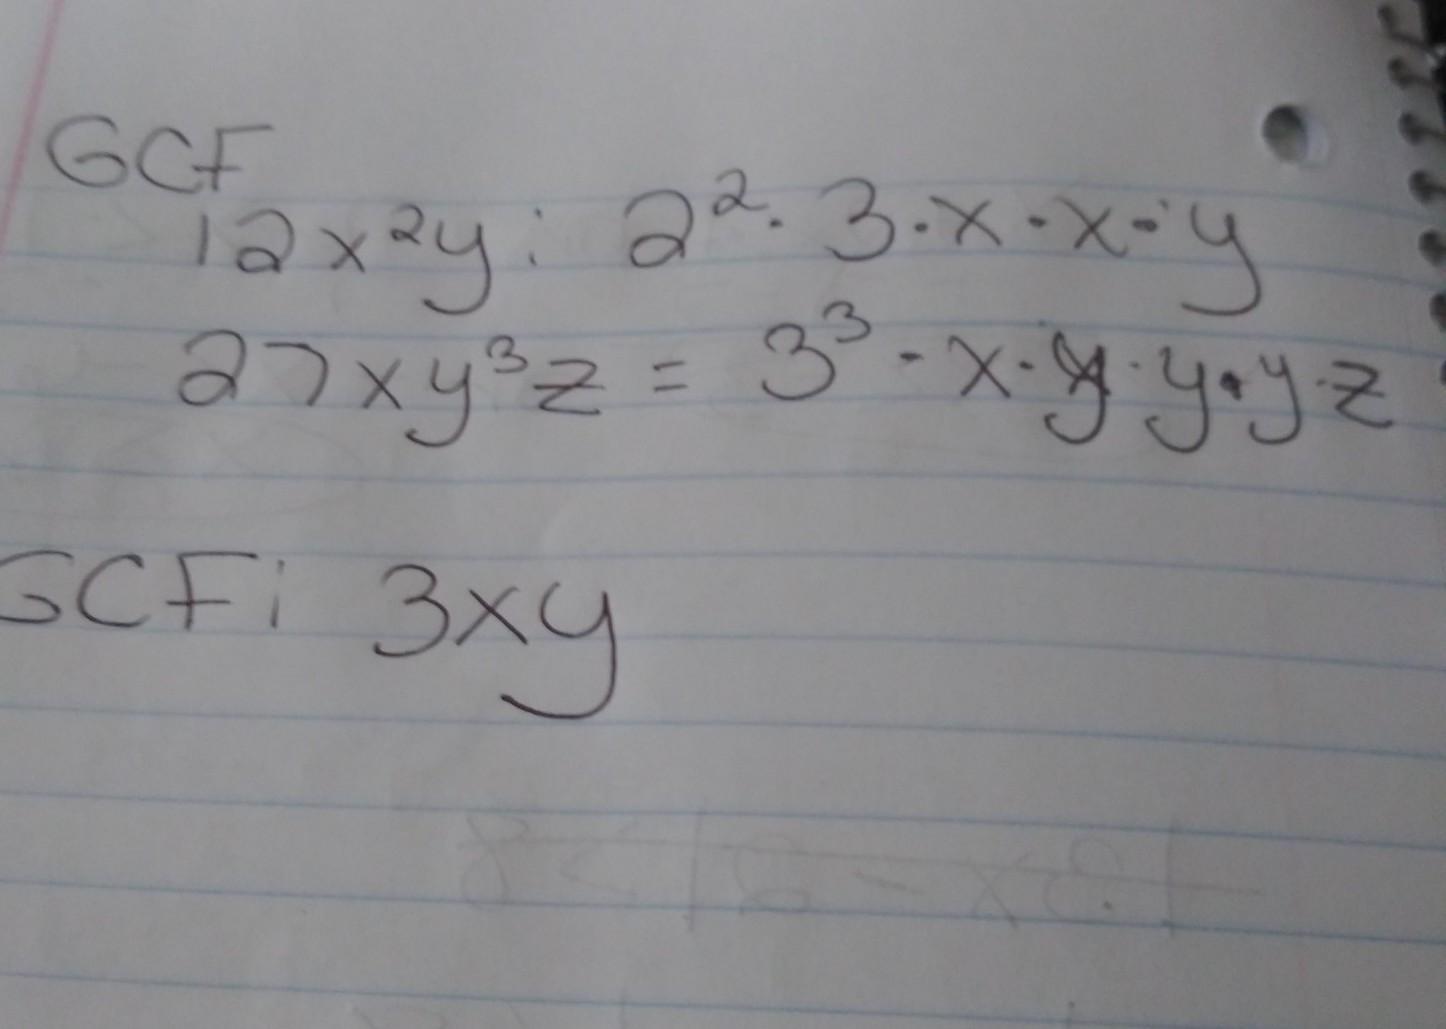 GCF
12x²y: 2² · 3 · x · x · y
27xy³z = 3³ · x · y · y · y · z
GCF: 3xy